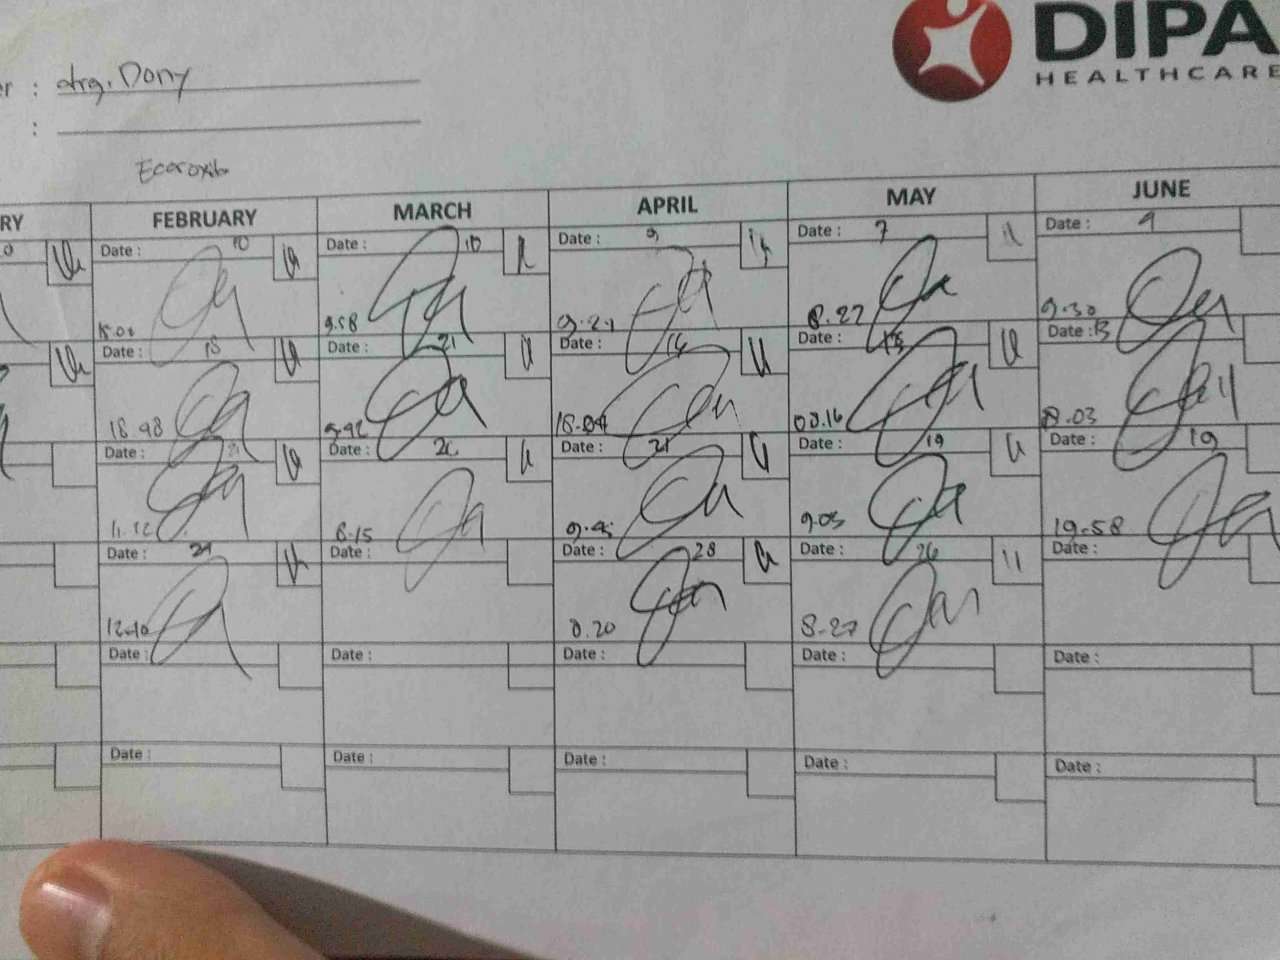 DIPA
HEALTHCARE
er : drg. Dony
:
Ecoroxib
RY FEBRUARY MARCH APRIL MAY JUNE
Date : 10 Date : 10 Date : 9 Date : 7 Date : 9
9.58 8.27 9.30
Date : 18 Date : 21 Date : 14 Date : Date : 13
18.48 9.42 08.16 8.03
Date : 21 Date : 26 Date : 21 Date : 19 Date : 19
8.15 9.45 9.05 19.58
Date : 24 Date : Date : 28 Date : 26 Date :
12.10 8.20 8.27
Date : Date : Date : Date : Date :
Date : Date : Date : Date : Date :